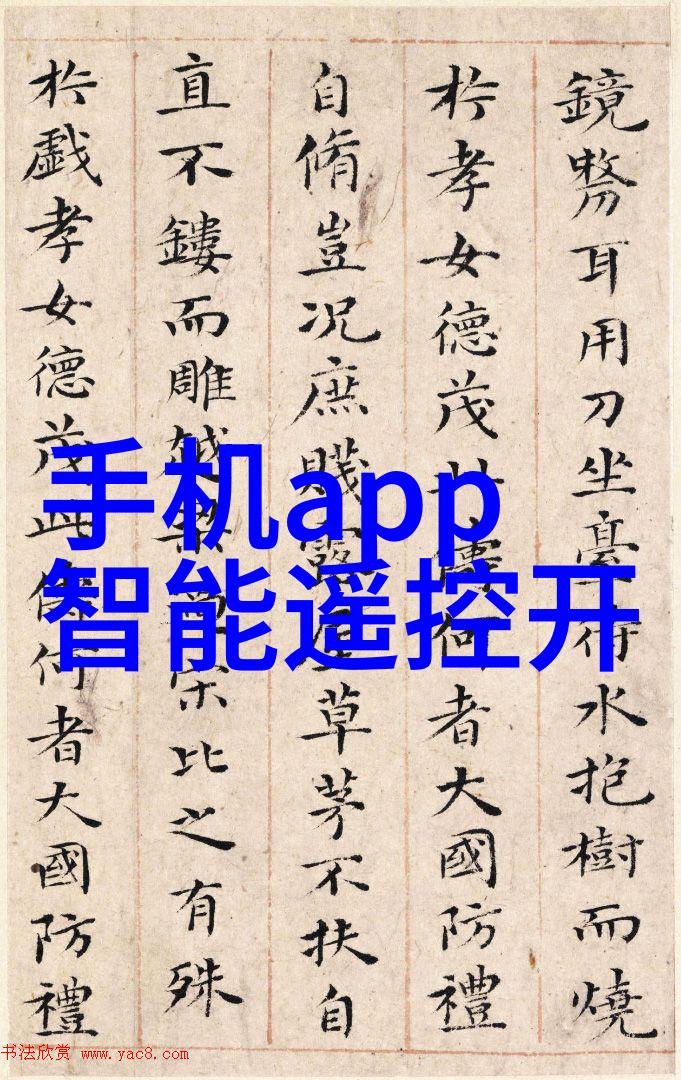 鏡剺耳用刀坐臺待水抱樹而燒
於孝女德茂此儔何者大國防禮
自脩豈況庶賤露屋草茅不扶自
直不鏤而雕越梁宋比之有殊
於戲孝女德茂此儔何者大國防禮
手机app
智能遥控开
书法欣赏 www.yac8.com